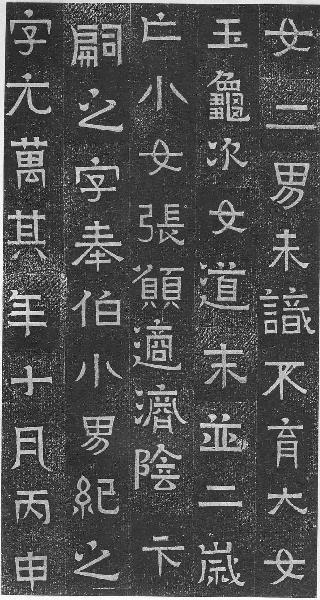 女二男未識不育大女
玉龜次女道末並二歲
亡小女張願適濟陰卞
嗣之字奉伯小男紀之
字元萬其年十月丙申